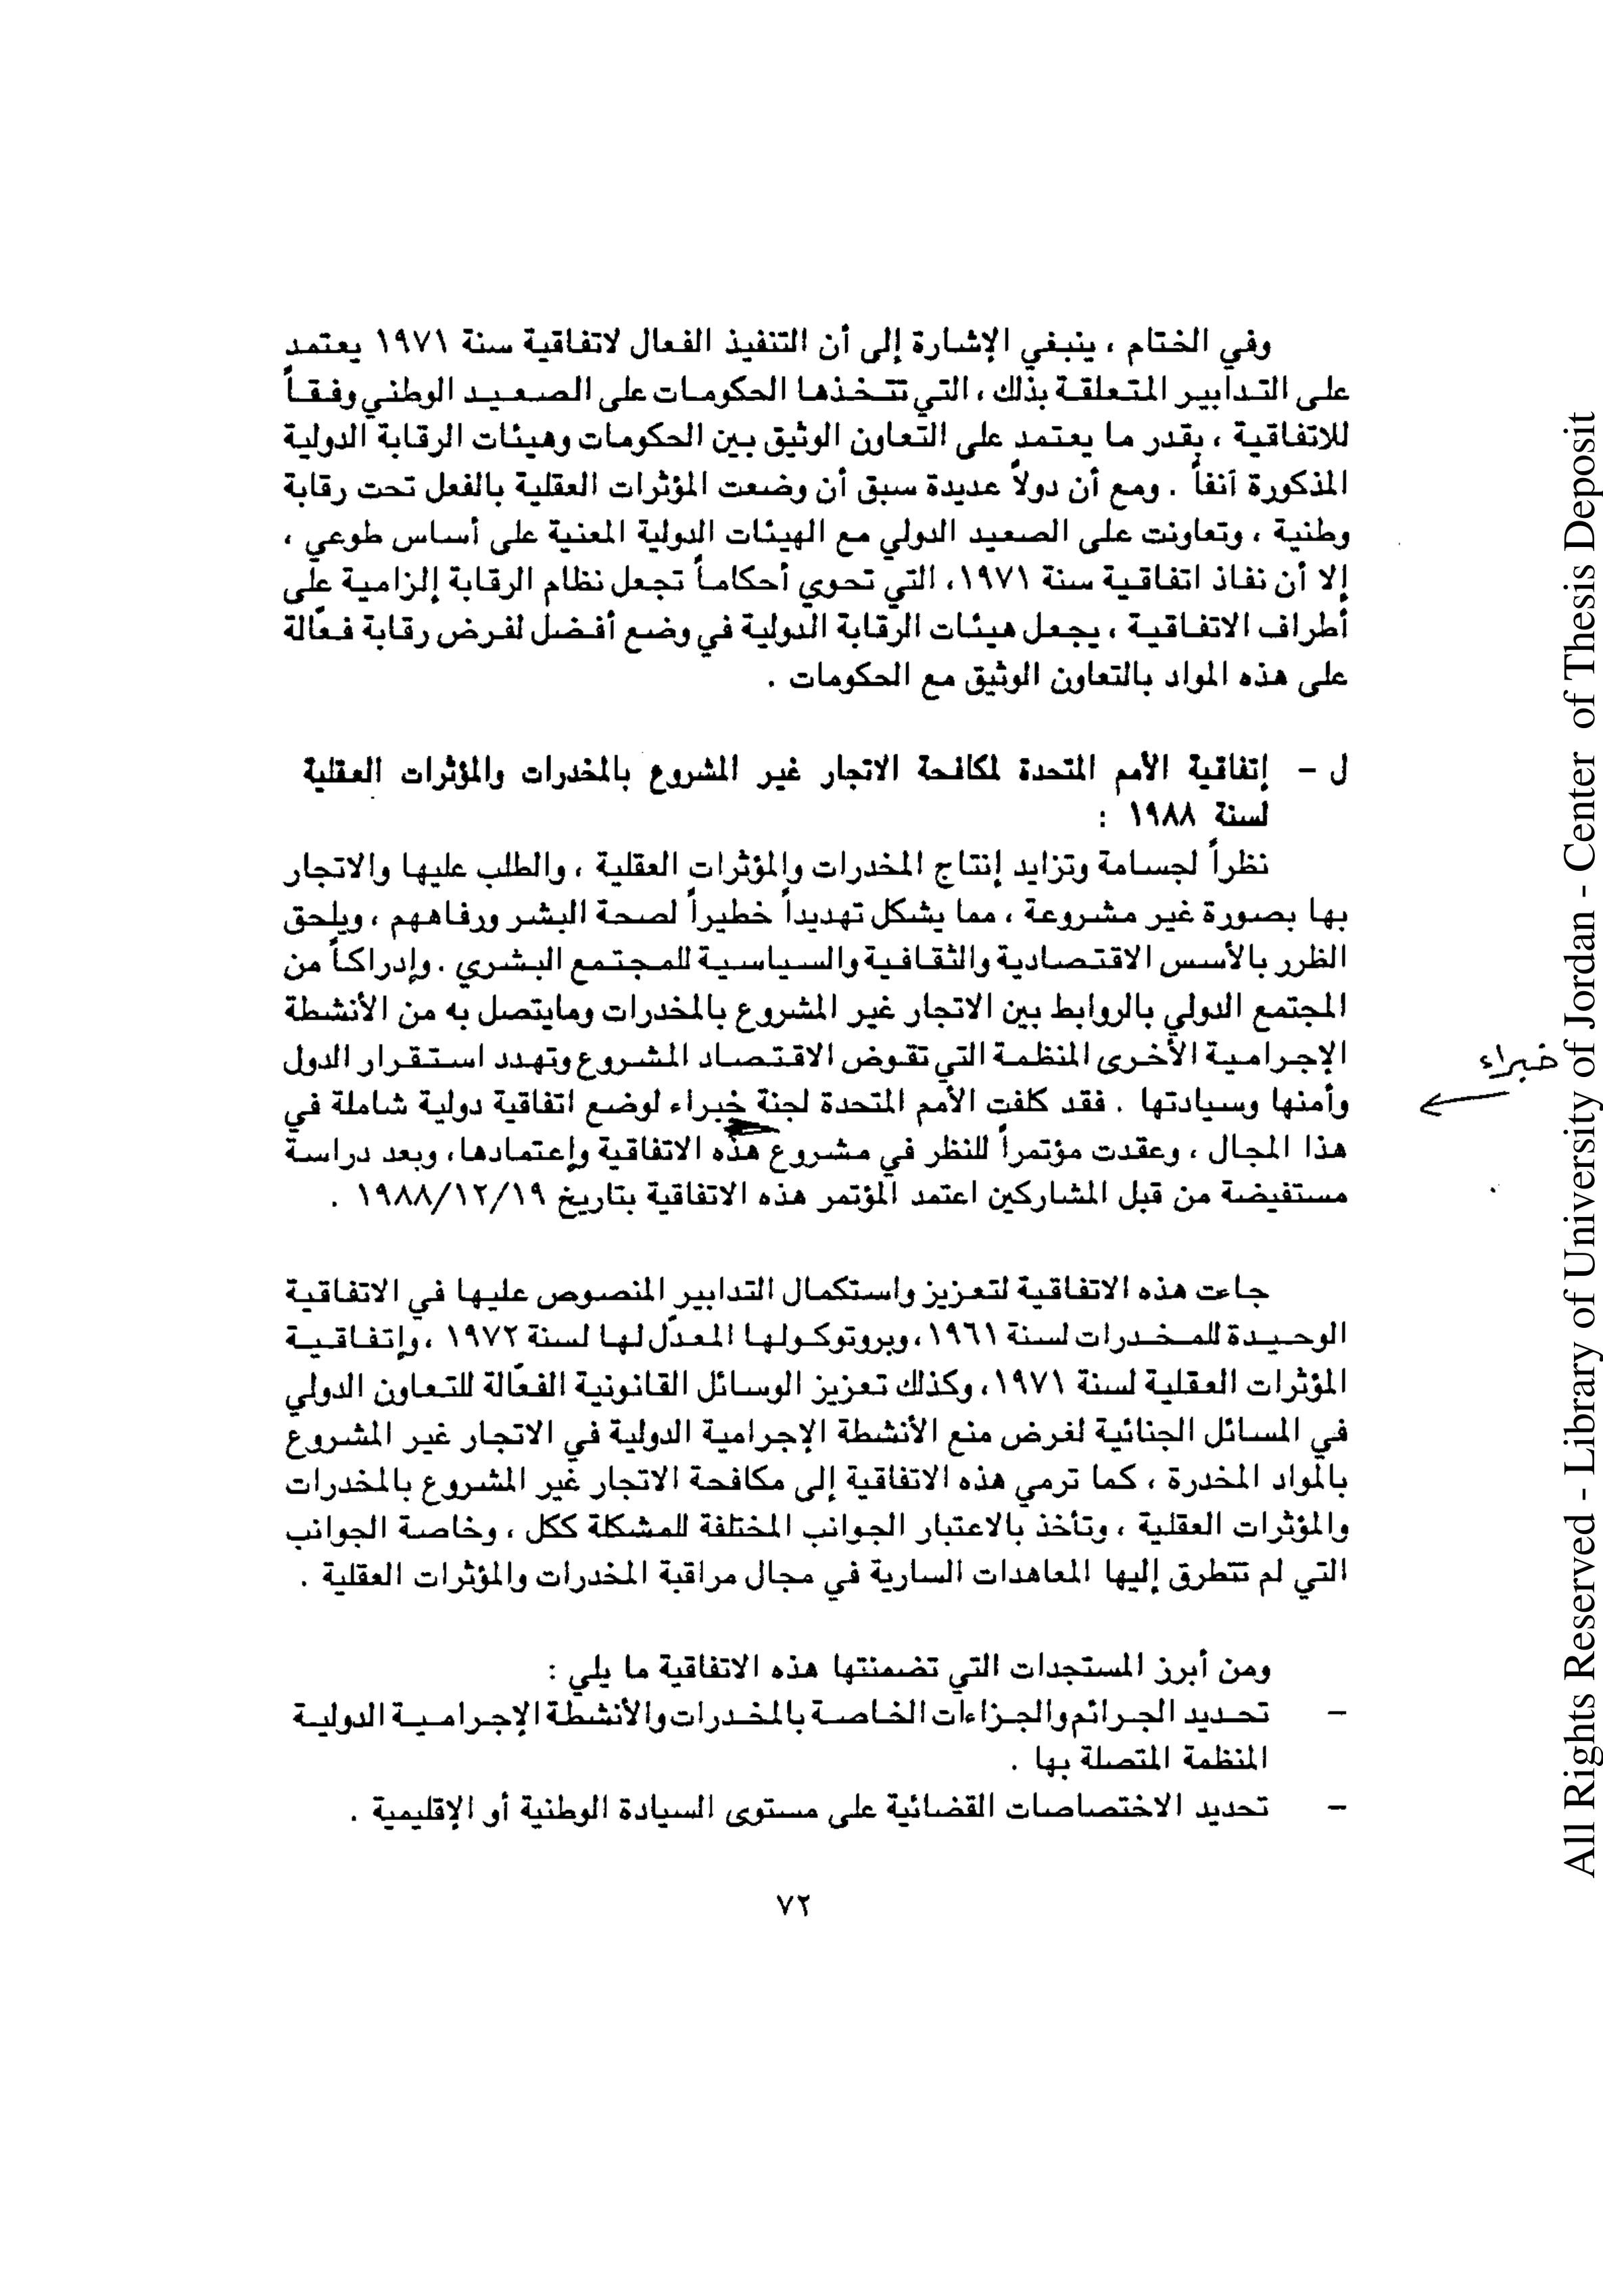 وفي الختام ، ينبغي الإشارة إلى أن التنفيذ الفعال لاتفاقية سنة ١٩٧١ يعتمد
على التدابير المتعلقة بذلك ، التي تتخذها الحكومات على الصعيد الوطني وفقاً
للاتفاقية ، بقدر ما يعتمد على التعاون الوثيق بين الحكومات وهيئات الرقابة الدولية
المذكورة آنفاً . ومع أن دولاً عديدة سبق أن وضعت المؤثرات العقلية بالفعل تحت رقابة
وطنية ، وتعاونت على الصعيد الدولي مع الهيئات الدولية المعنية على أساس طوعي ،
إلا أن نفاذ اتفاقية سنة ١٩٧١، التي تحوي أحكاماً تجعل نظام الرقابة إلزامية على
أطراف الاتفاقية ، يجعل هيئات الرقابة الدولية في وضع أفضل لفرض رقابة فعّالة
على هذه المواد بالتعاون الوثيق مع الحكومات .
ل - إتفاقية الأمم المتحدة لمكافحة الاتجار غير المشروع بالمخدرات والمؤثرات العقلية
لسنة ١٩٨٨ :
نظراً لجسامة وتزايد إنتاج المخدرات والمؤثرات العقلية ، والطلب عليها والاتجار
بها بصورة غير مشروعة ، مما يشكل تهديداً خطيراً لصحة البشر ورفاههم ، ويلحق
الظرر بالأسس الاقتصادية والثقافية والسياسية للمجتمع البشري . وإدراكاً من
المجتمع الدولي بالروابط بين الاتجار غير المشروع بالمخدرات ومايتصل به من الأنشطة
الإجرامية الأخرى المنظمة التي تقوض الاقتصاد المشروع وتهدد استقرار الدول
خبراء
وأمنها وسيادتها . فقد كلفت الأمم المتحدة لجنة خبراء لوضع اتفاقية دولية شاملة في
هذا المجال ، وعقدت مؤتمراً للنظر في مشروع هذه الاتفاقية وإعتمادها، وبعد دراسة
مستفيضة من قبل المشاركين اعتمد المؤتمر هذه الاتفاقية بتاريخ ١٩٨٨/١٢/١٩ .
جاءت هذه الاتفاقية لتعزيز واستكمال التدابير المنصوص عليها في الاتفاقية
الوحيدة للمخدرات لسنة ١٩٦١، وبروتوكولها المعدّل لها لسنة ١٩٧٢ ، وإتفاقية
المؤثرات العقلية لسنة ١٩٧١، وكذلك تعزيز الوسائل القانونية الفعّالة للتعاون الدولي
في المسائل الجنائية لغرض منع الأنشطة الإجرامية الدولية في الاتجار غير المشروع
بالمواد المخدرة ، كما ترمي هذه الاتفاقية إلى مكافحة الاتجار غير المشروع بالمخدرات
والمؤثرات العقلية ، وتأخذ بالاعتبار الجوانب المختلفة للمشكلة ككل ، وخاصة الجوانب
التي لم تتطرق إليها المعاهدات السارية في مجال مراقبة المخدرات والمؤثرات العقلية .
ومن أبرز المستجدات التي تضمنتها هذه الاتفاقية ما يلي :
- تحديد الجرائم والجزاءات الخاصة بالمخدرات والأنشطة الإجرامية الدولية
المنظمة المتصلة بها .
- تحديد الاختصاصات القضائية على مستوى السيادة الوطنية أو الإقليمية .
٧٢
All Rights Reserved - Library of University of Jordan - Center of Thesis Deposit